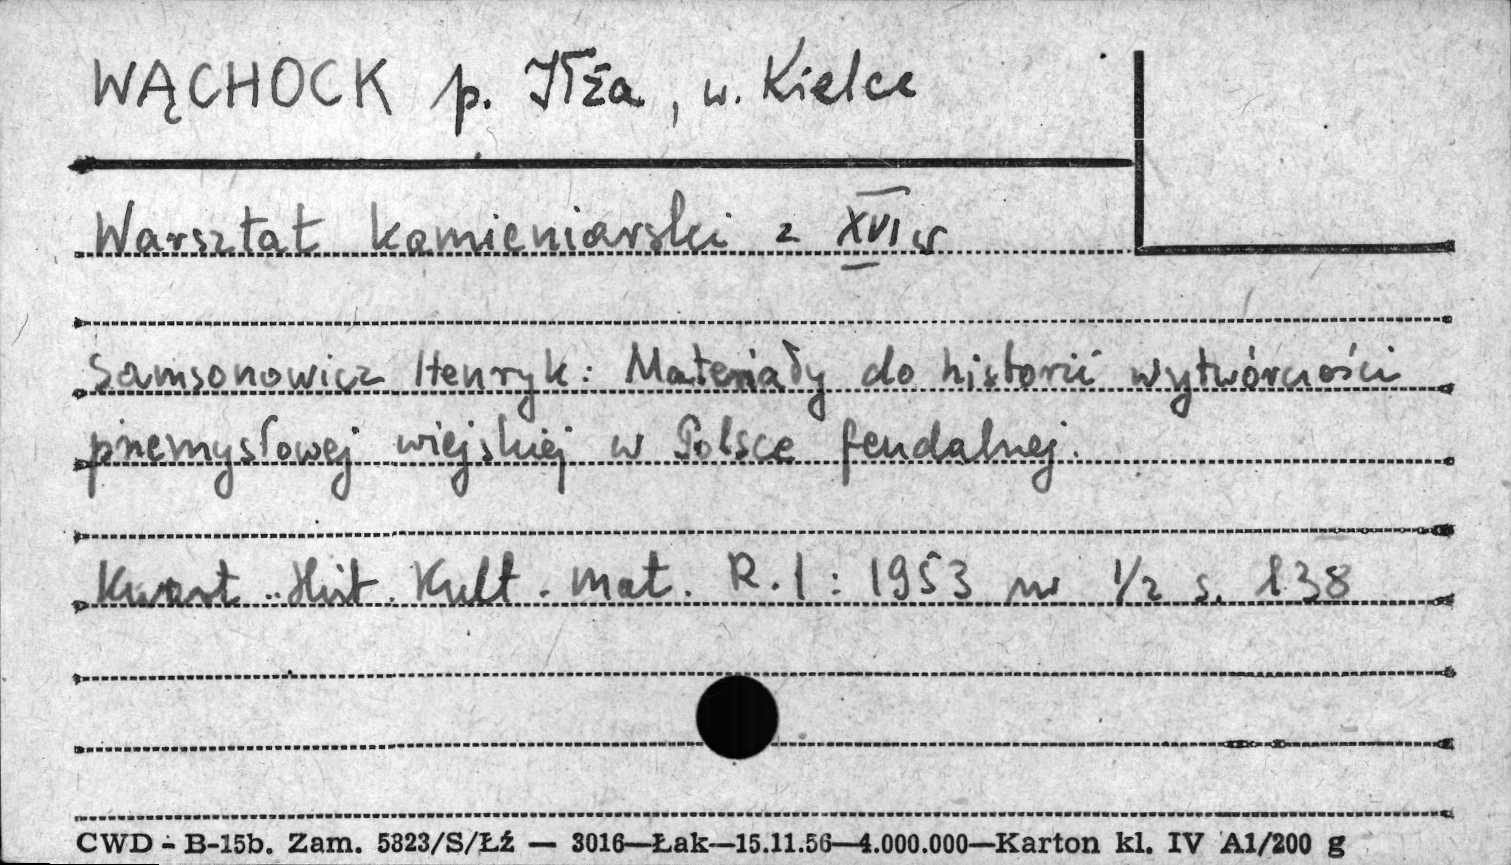 WĄCHOCK p. Iłża, w. Kielce
Warsztat kamieniarski z XVI w
Samsonowicz Henryk: Materiały do historii wytwórczości
przemysłowej wiejskiej w Polsce feudalnej.
Kwart. Hist. Kult. mat. R. I: 1953 nr 1/2 s. 138
CWD - B-15b. Zam. 5823/S/Łź — 3016—Łak—15.11.56—4.000.000—Karton kl. IV A1/200 g